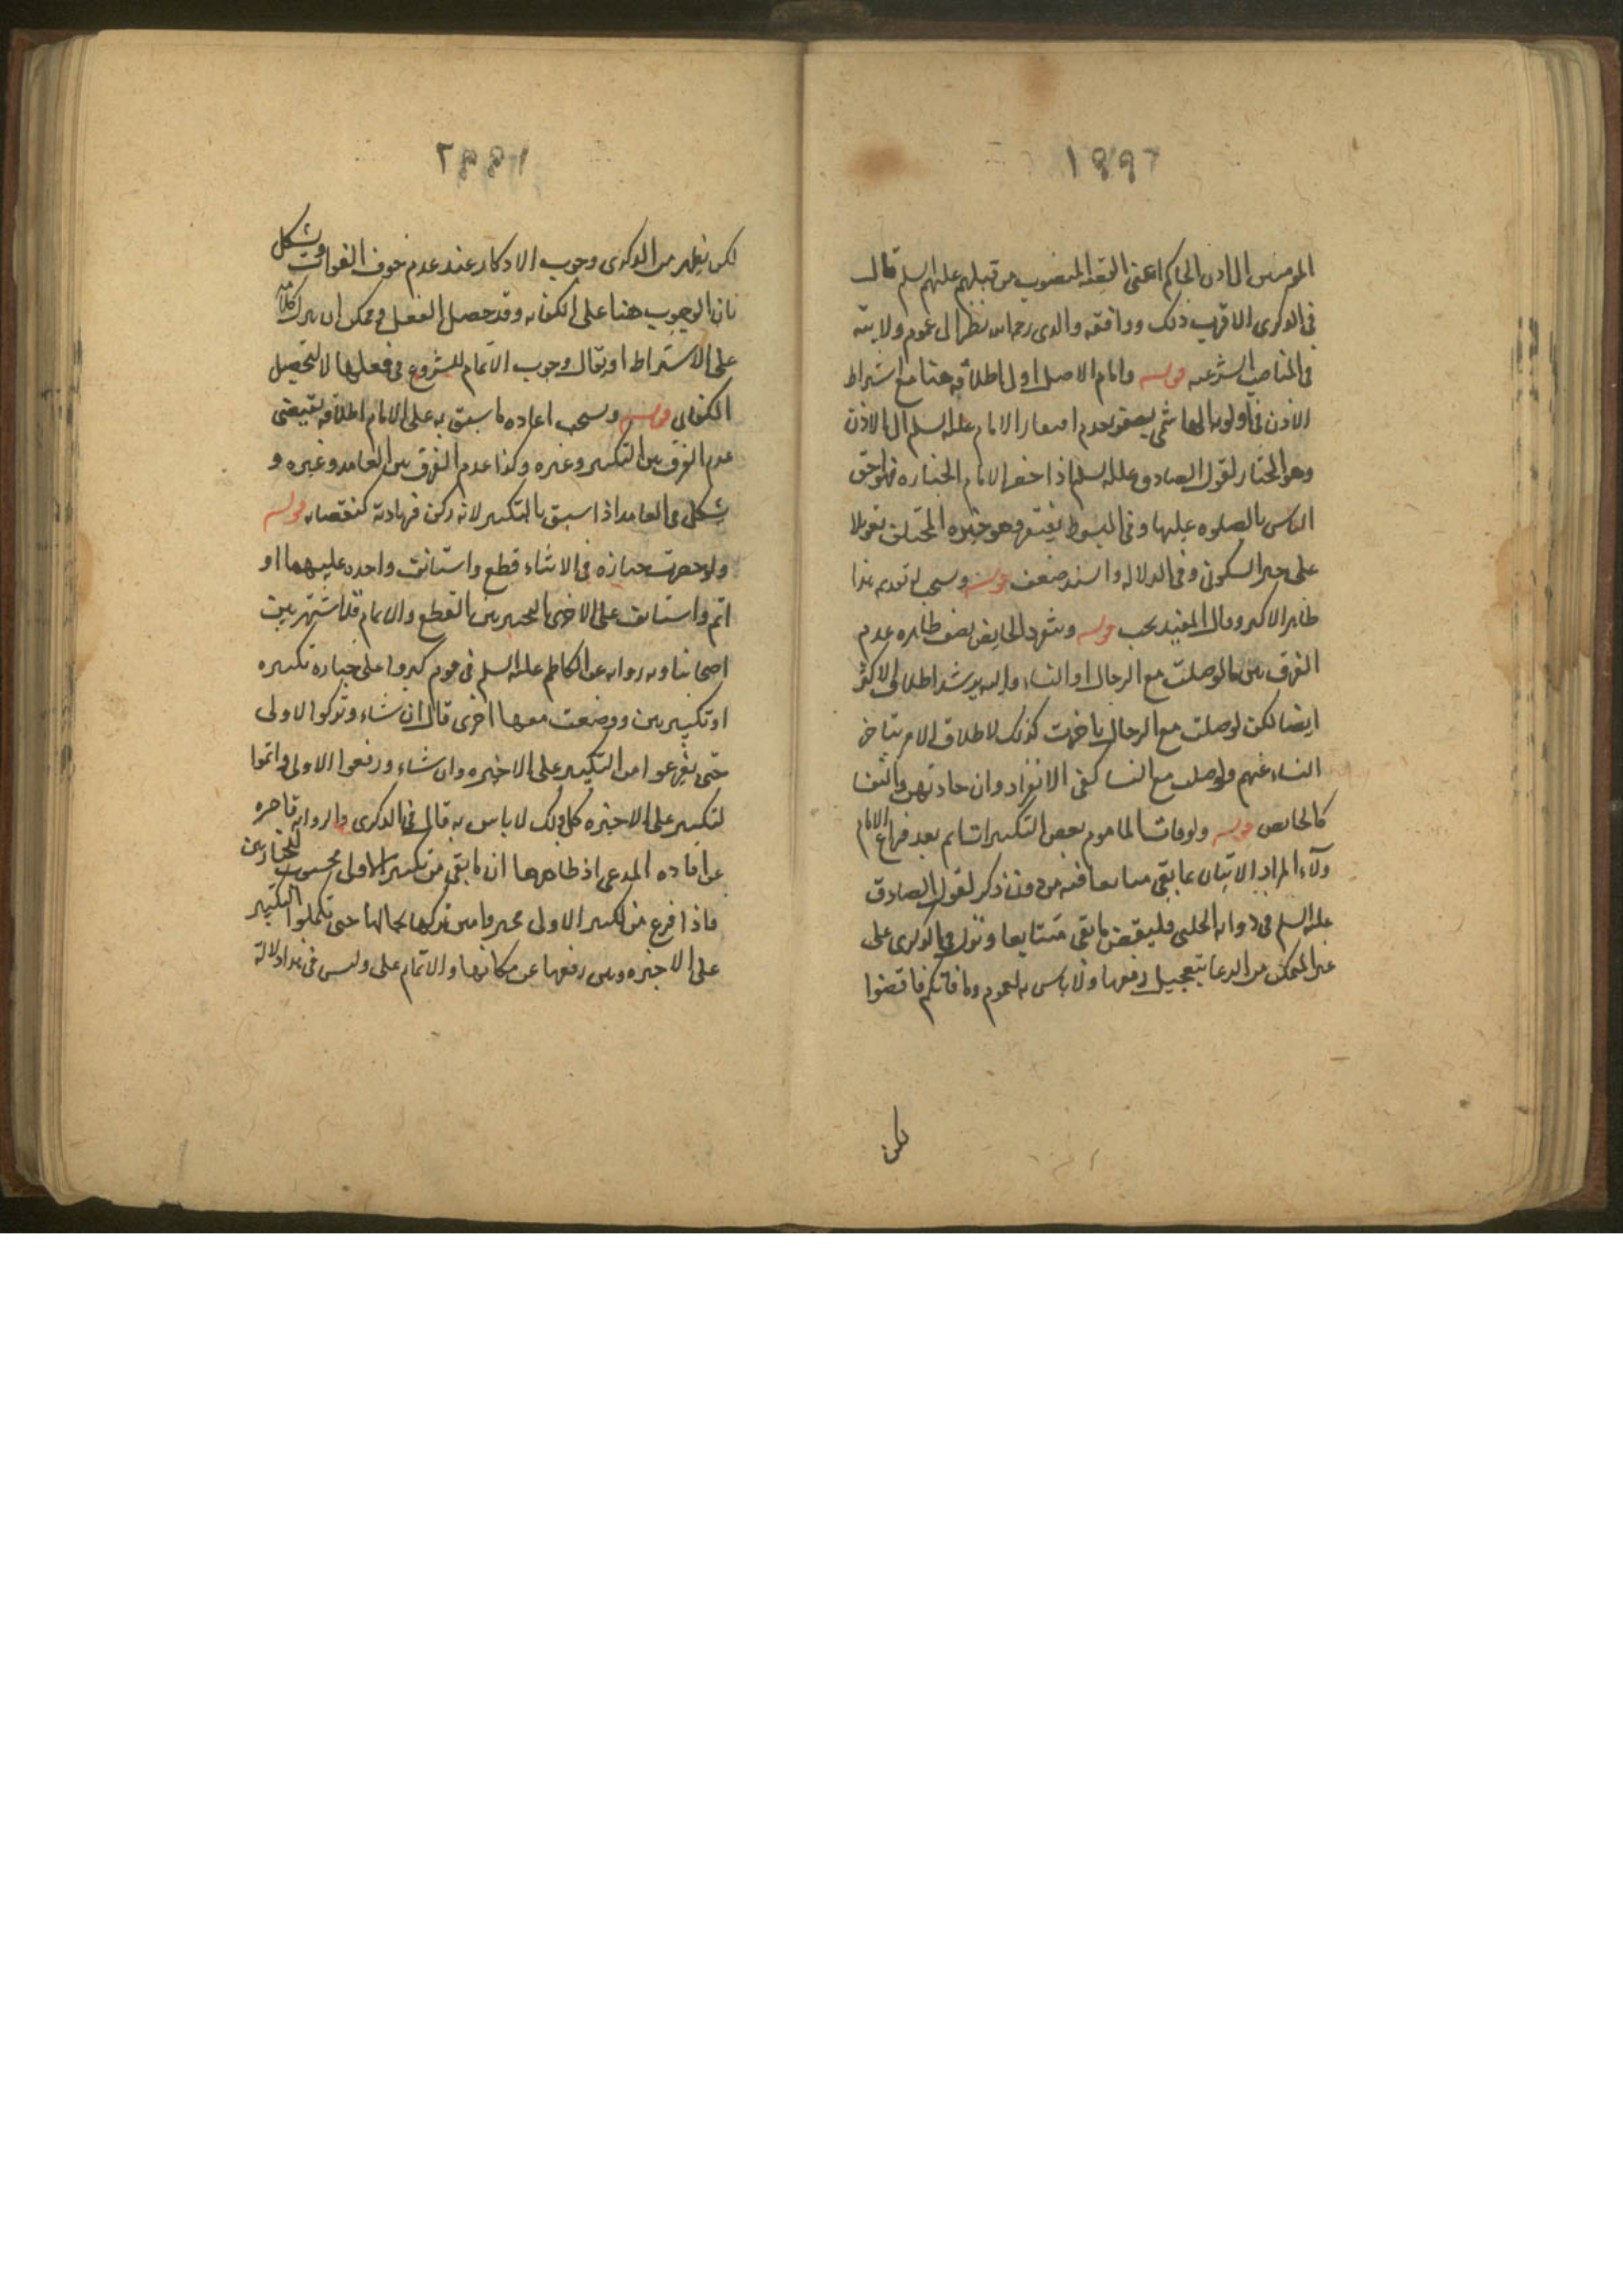 المومنين الى اذن الحاكم اعنى الفقيه المنصوب من قبلهم عليهم السلم قال
فى الذكرى الاقرب ذلك ووافقه والدى رحمه الله نظرا الى عموم ولايته
فى المناصب الشرعيه قوله وامام الاصل اولى اطلاقه هنا مع اشتراط
الاذن فى اولويه الهاشمى بعدم افتقار الامام عليه السلم الى الاذن
وهو المختار لقول الصادق عليه السلم اذا حضر الامام الجنازه فهو احق
الناس بالصلوه عليها وفى المبسوط يفتقر وهو خيره المختلف تعويلا
على خبر السكونى وفى الدلاله والسند ضعف قوله ويستحب له تقديمه هذا
ظاهر الاكثر وقال المفيد يجب قوله وينفرد الحايض بصف ظاهره عدم
الفرق بين ما لو صلت مع الرجال او النساء واليه يرشد اطلاق الاكثر
ايضا لكن لو صلت مع الرجال تاخرت كذلك لاطلاق الامر بتاخر
النساء عنهم ولو صلت مع النسا كفى الانفراد وان حاذتهن والنفسا
كالحايض قوله ولو فات الماموم بعض التكبيرات اتم بعد فراغ الامام
ولآء المراد الاتيان بما بقى متتابعا من دون ذكر لقول الصادق
عليه السلم فى روايه الحلبى فليقض ما بقى متتابعا ونزل فى الذكرى على
غير المتمكن من الدعا بتعجيل رفعها ولا باس به لعموم وما فاتكم فاقضوا
لكن
لكن يظهر من الذكرى وجوب الاذكار عند عدم خوف الفوات ويشكل
بان الوجوب هنا على الكفايه وقد حصل الفعل ويمكن ان ينزل كلامه
على الاشتراط او يقال وجوب الاتمام للشروع فى فعلها لا لتحصيل
الكفاى قوله ويستحب اعاده ما سبق به على الامام اطلاقه يقتضى
عدم الفرق بين التكبير وغيره وكذا عدم الفرق بين العامد وغيره و
يشكل فى العامد اذا سبق بالتكبير لانه ركن فزيادته كنقصانه قوله
ولو حضرت جنازه فى الاثناء قطع واستانف واحده عليهما او
اتم واستانف على الاخرى التخيير بين القطع والاتمام قد اشتهر بين
اصحابنا وبه روايه عن الكاظم عليه السلم فى قوم كبروا على جنازه تكبيره
او تكبيرتين ووضعت معها اخرى قال ان شاء وتركوا الاولى
حتى يفرغوا من التكبير على الاخيره وان شاء ورفعوا الاولى واتموا
لتكبير على الاخيره كل ذلك لا باس به قال فى الذكرى والروايه قاصره
عن افاده المدعى اذ ظاهرها ان ما بقى من تكبير الاولى محسوب للجنازتين
فاذا فرغ من تكبير الاولى تخيروا بين تركها بحالها حتى تكملوا التكبير
على الاخيره وبين رفعها عن مكانها والاتمام على وليس فى هذا دلاله